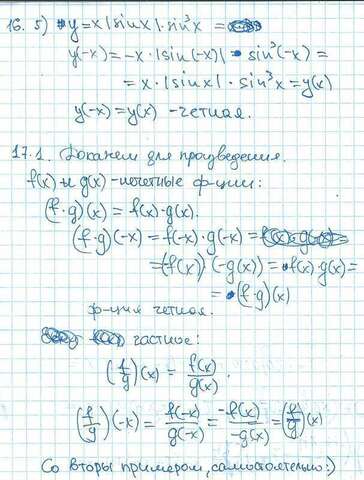 16. 5) y = x |sin x| · sin³x =
y(-x) = -x · |sin(-x)| · sin³(-x) =
= x · |sin x| · sin³x = y(x)
y(-x) = y(x) - четная.
17.1. Докажем для произведения.
f(x) и g(x) - нечетные ф-ции:
(f·g)(x) = f(x)·g(x).
(f·g)(-x) = f(-x)·g(-x) =
= (-f(x)) (-g(x)) = f(x)·g(x) =
= (f·g)(x)
ф-ция четная.
частное:
(f/g)(x) = f(x)/g(x).
(f/g)(-x) = f(-x)/g(-x) = -f(x)/-g(x) = (f/g)(x)
Со вторы примером, самостоятельно:)